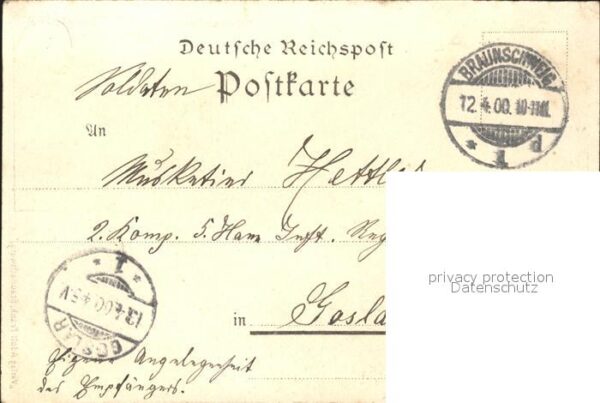 Deutsche Reichspost
Soldaten Postkarte
BRAUNSCHWEIG
12.4.00.10-11V.
* 1 P
An
Musketier Hettl
2. Komp. 5. Hann Inft. Reg
privacy protection
Datenschutz
* 1 *
13.4.00.4-5V
GOSLAR
in Gosla
Eigene Angelegenheit
des Empfängers.